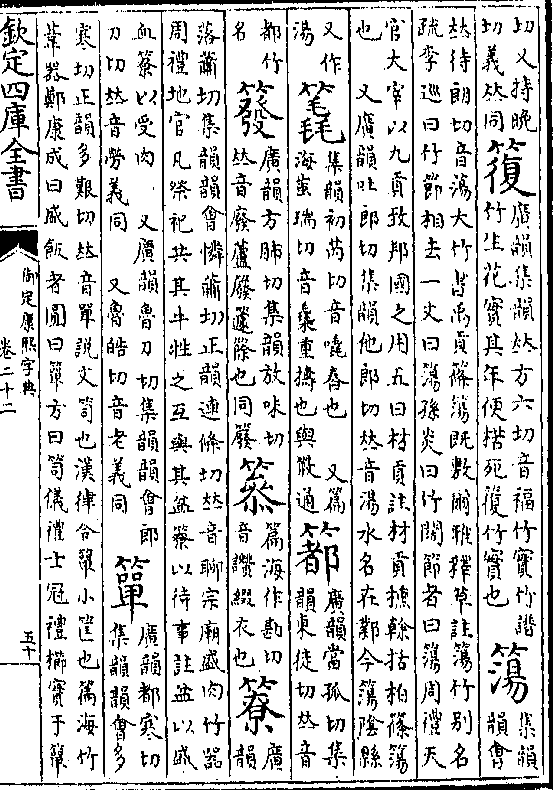 切又持晚
切義𠀤同
𥳇
廣韻集韻𠀤方六切音福竹實竹譜
竹生花實其年便枯死𥳇竹實也
簜
集韻
韻會
𠀤待朗切音蕩大竹書禹貢篠簜旣敷爾雅釋草註簜竹別名
疏李巡曰竹節相去一丈曰簜孫炎曰竹闊節者曰簜周禮天
官大宰以九貢致邦國之用五曰材貢註材貢櫄幹栝柏篠簜
也 又廣韻吐郎切集韻他郎切𠀤音湯水名在鄴今簜陰縣
又作
湯
集韻初芮切音毳舂也 又篇
海茁瑞切音棰重擣也與𣯶通
䈞
廣韻當孤切集
韻東徒切𠀤音
都竹
名
廣韻方肺切集韻放吠切
𠀤音廢蘆廢籧篨也同廢
篇海作勘切
音讚綴衣也
簝
廣
韻
落蕭切集韻韻會憐蕭切正韻連條切𠀤音聊宗廟盛肉竹器
周禮地官凡祭祀共其牛牲之互與其盆簝以待事註盆以盛
血簝以受肉 又廣韻魯刀切集韻韻會郎
刀切𠀤音勞義同 又魯皓切音老義同
簞
廣韻都寒切
集韻韻會多
寒切正韻多艱切𠀤音單說文笥也漢律令簞小筐也篇海竹
葉器鄭康成曰盛飯者圓曰簞方曰笥儀禮士冠禮櫛實于簞
欽定四庫全書
御定康熙字典
卷二十二
五十